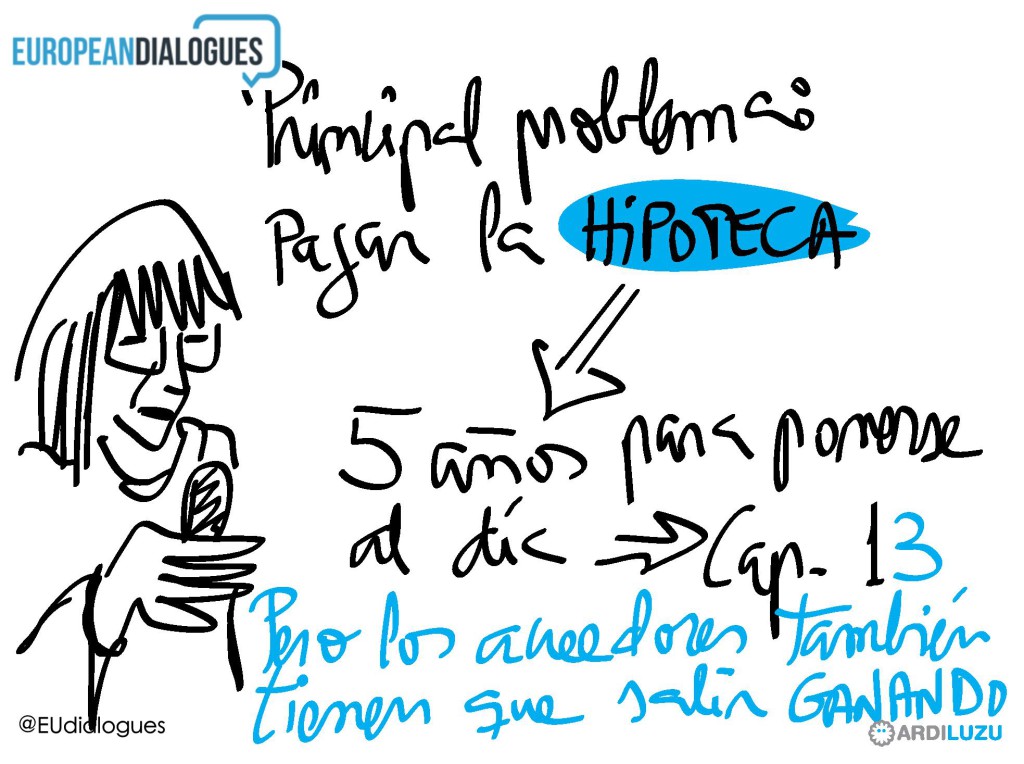 EUROPEANDIALOGUES
Principal problema:
Pagar la HiPOTECA
5 años para ponerse
al día Cap. 13
Pero los acreedores también
tienen que salir GANANDO
@EUdialogues
ARDILUZU